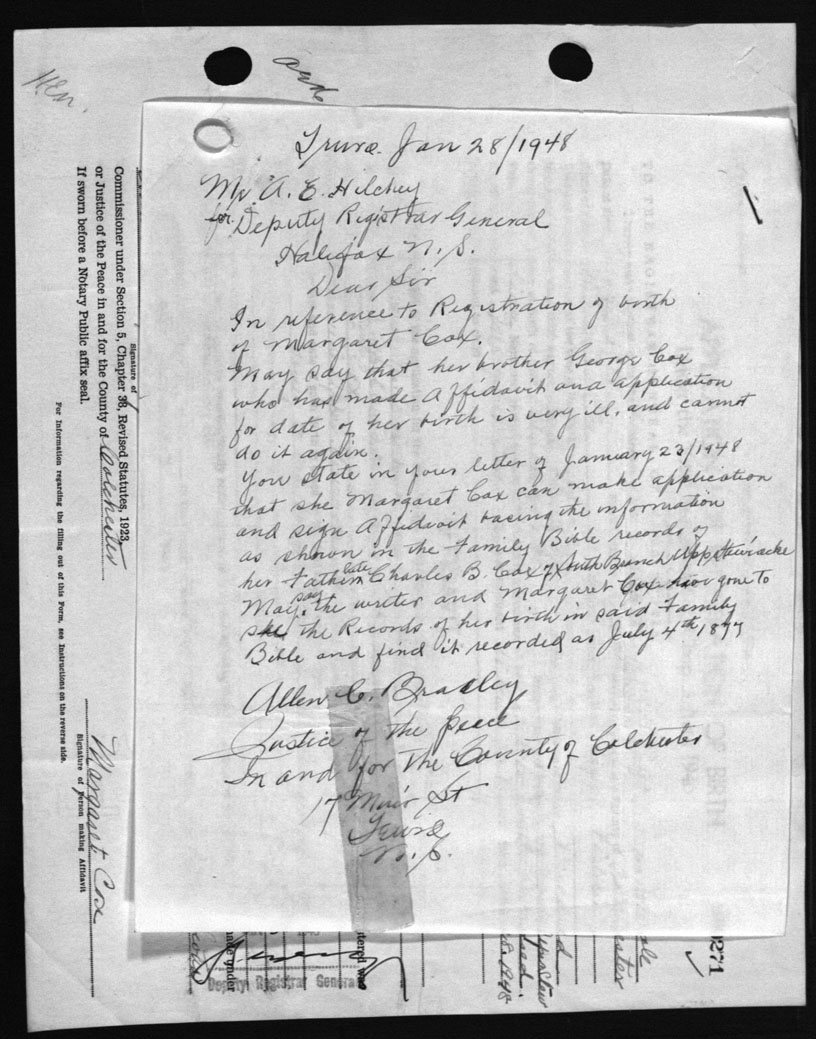 Truro. Jan 28/1948
Mr. A. E. Hilchey
for Deputy Registrar General
Halifax N. S.
Dear Sir
In reference to Registration of birth
of Margaret Cox.
May say that her brother George Cox
who has made affidavit and application
for date of her birth is very ill, and cannot
do it again.
You state in your letter of January 23/1948
that she Margaret Cox can make application
and sign Affidavit basing the information
as shown in the Family Bible records of
her Father Late Charles B. Cox of South Branch Upp Stewiacke
May say the writer and Margaret Cox have gone to
see the Records of her birth in said Family
Bible and find it recorded as July 4th, 1877
Allen C. Bradley
Justice of the peace
In and for the County of Colchester
17 Muir St
Truro
N. S.
Signature of
Commissioner under Section 5, Chapter 38, Revised Statutes, 1923,
or Justice of the Peace in and for the County of Colchester
If sworn before a Notary Public affix seal.
For information regarding the filling out of this Form, see Instructions on the reverse side.
Margaret Cox
Signature of Person making Affidavit
made under
Deputy Registrar General
stered was
0271